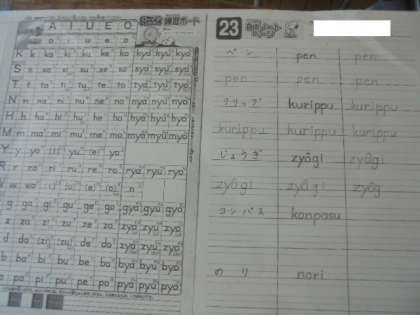 A I U E O
a i u e o
K ka ki ku ke ko kya kyu kyo
S sa si su se so sya syu syo
T ta ti tu te to tya tyu tyo
N na ni nu ne no nya nyu nyo
H ha hi hu he ho hya hyu hyo
M ma mi mu me mo mya myu myo
Y ya (i) yu (e) yo
R ra ri ru re ro rya ryu ryo
W wa (i) (u) (e) (o) n
g ga gi gu ge go gya gyu gyo
z za zi zu ze zo zya zyu zyo
d da (zi) (zu) de do zya zyu zyo
b ba bi bu be bo bya byu byo
p pa pi pu pe po pya pyu pyo
練習ボード
23
ペン pen pen
pen pen pen
クリップ kurippu kurippu
kurippu kurippu kurippu
じょうぎ zyôgi zyôgi
zyôgi zyôgi zyôg
コンパス konpasu
のり nori